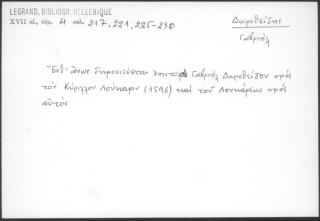 LEGRAND, BIBLIOGR. HELLENIQUE
XVII αἰ., τόμ. 4 σελ. 217, 221, 225-230
Δωροθεΐδης
Γαβριήλ
"Ἐδῶ δημοσιεύεται ἐπιστολὴ Γαβριὴλ Δωροθεΐδου πρὸς
τὸν Κύριλλον Λούκαριν (1596) καὶ τοῦ Λουκάρεως πρὸς
αὐτόν